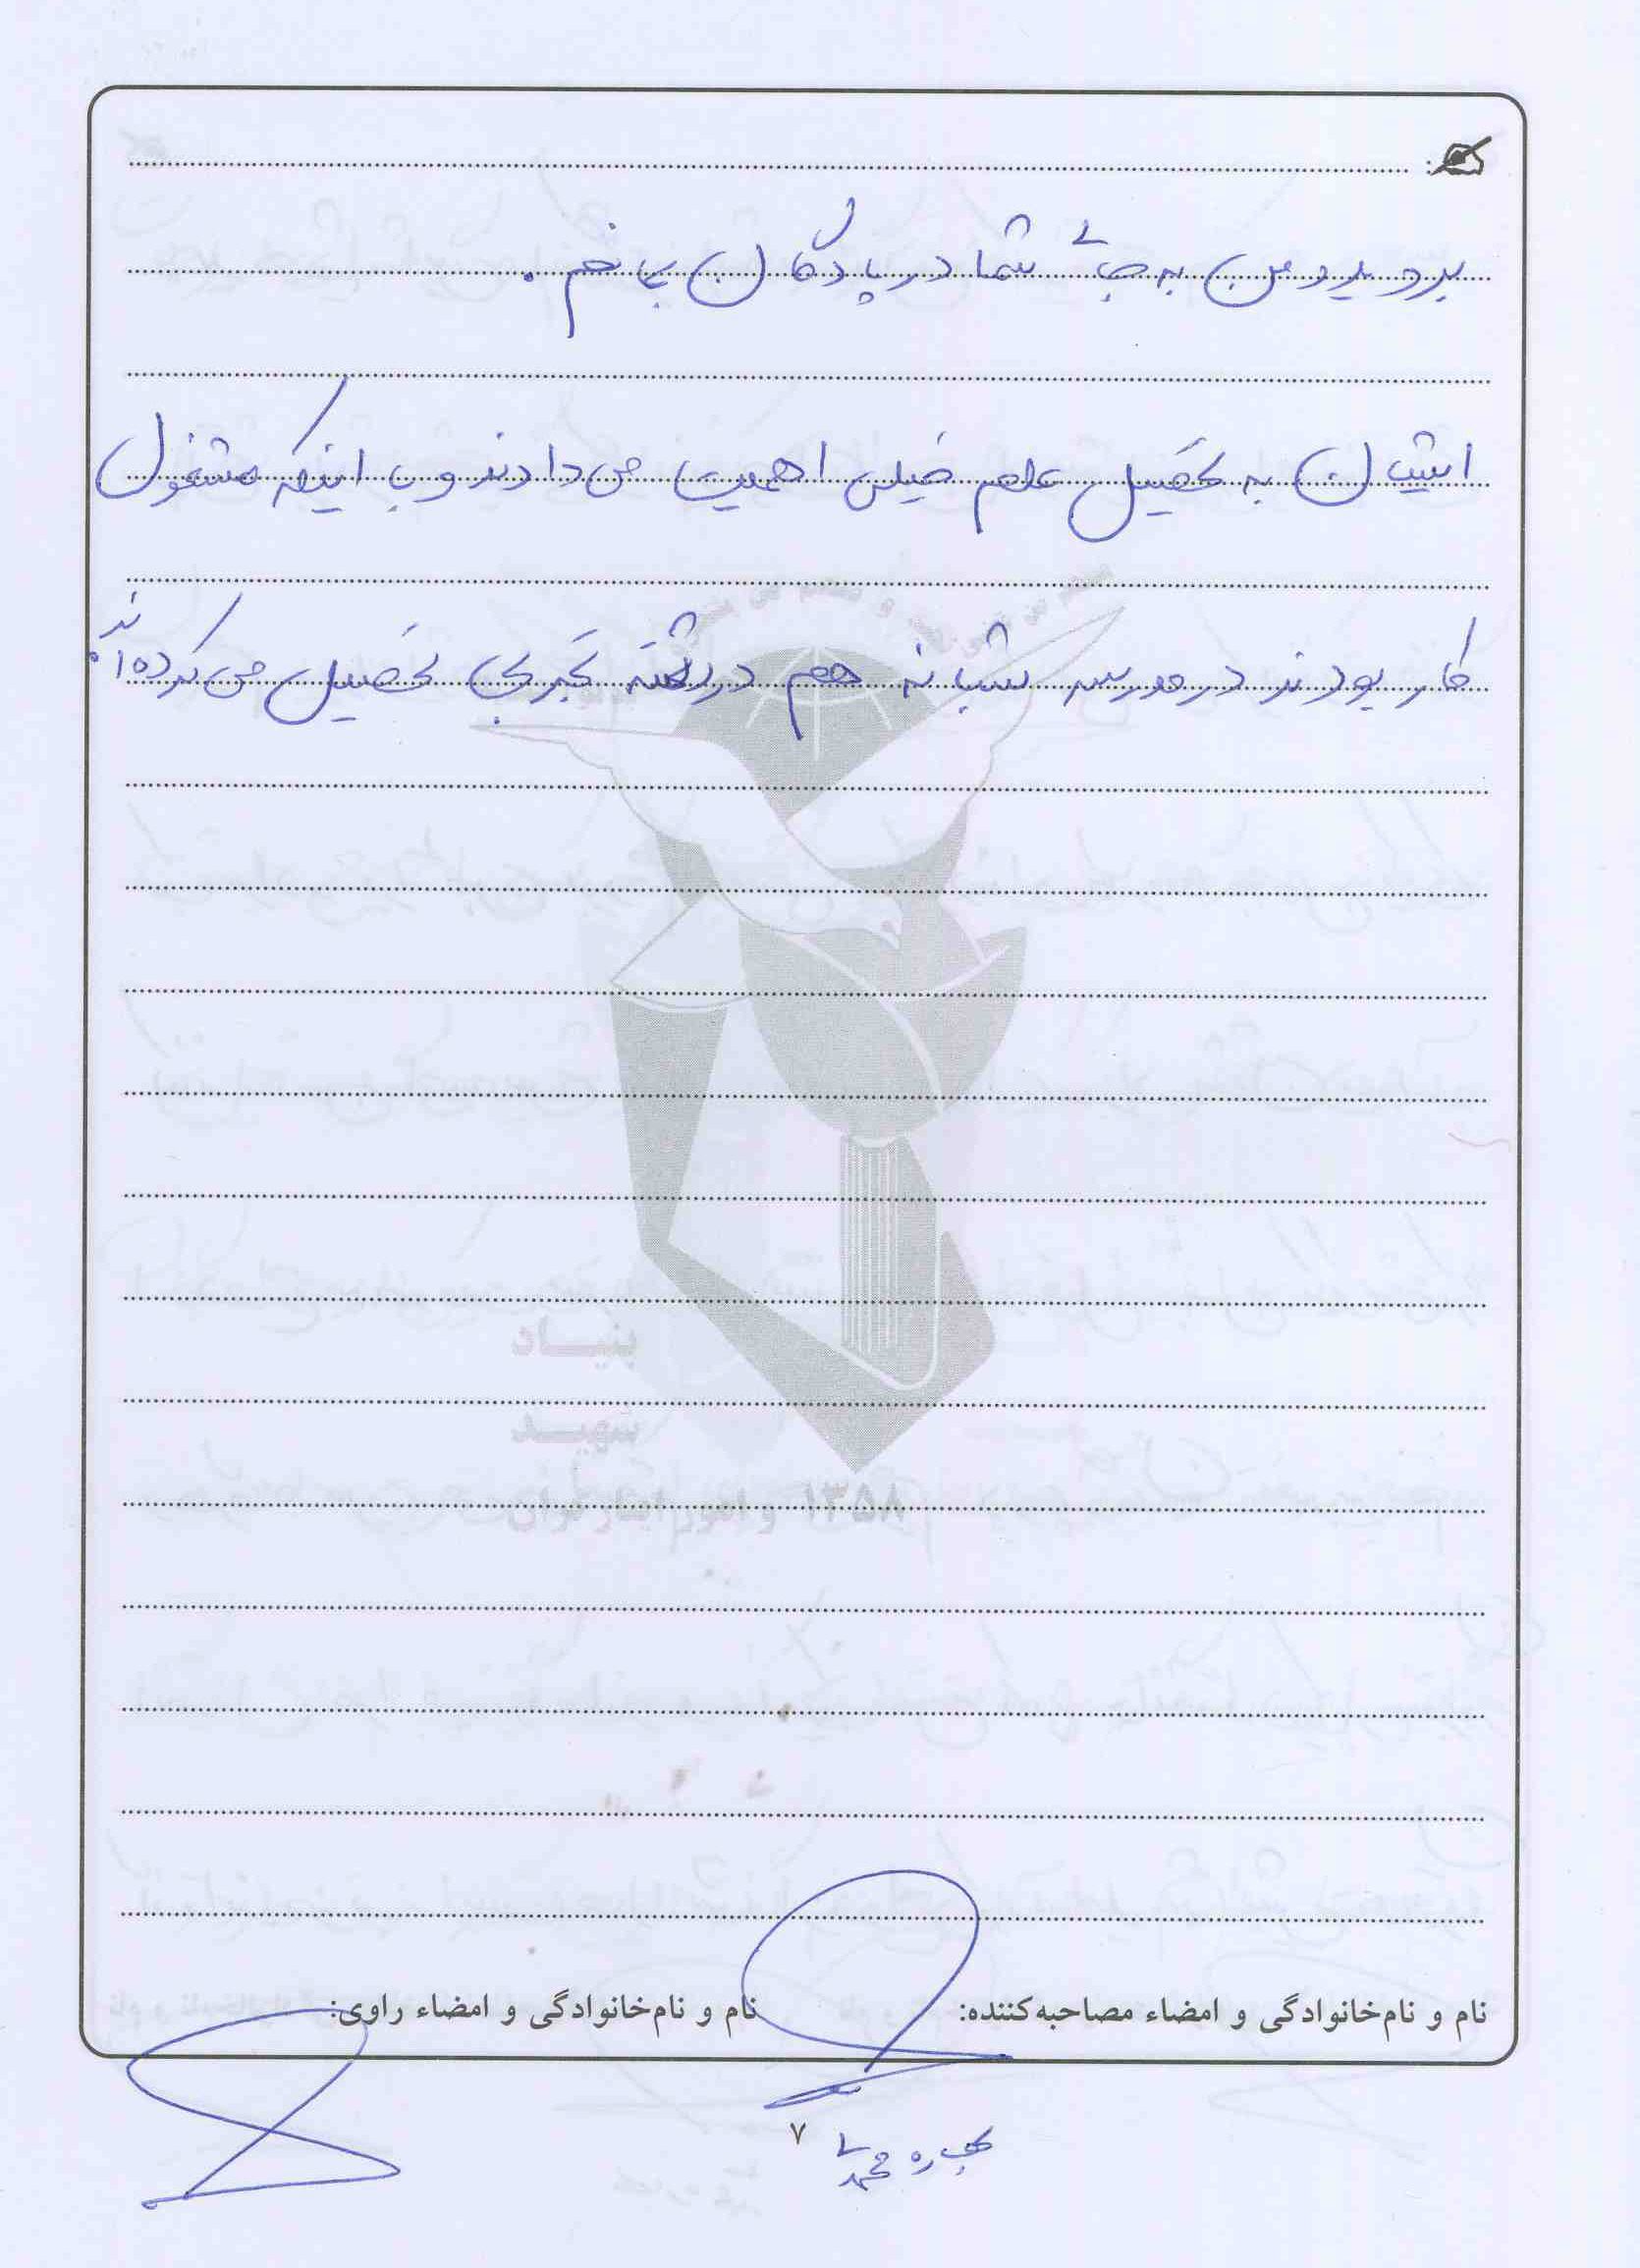 بروید و من به جای شما در پادگان بمانم .
ایشان به تحصیل علم خیلی اهمیت می دادند و با اینکه مشغول
کار بودند در مدرسه شبانه هم در رشته تجربی تحصیل می کرده اند.
بنیاد
شهید
و امور ایثارگران ۱۳۵۸
نام و نام‌خانوادگی و امضاء مصاحبه‌کننده: نام و نام‌خانوادگی و امضاء راوی:
محمدی
۷